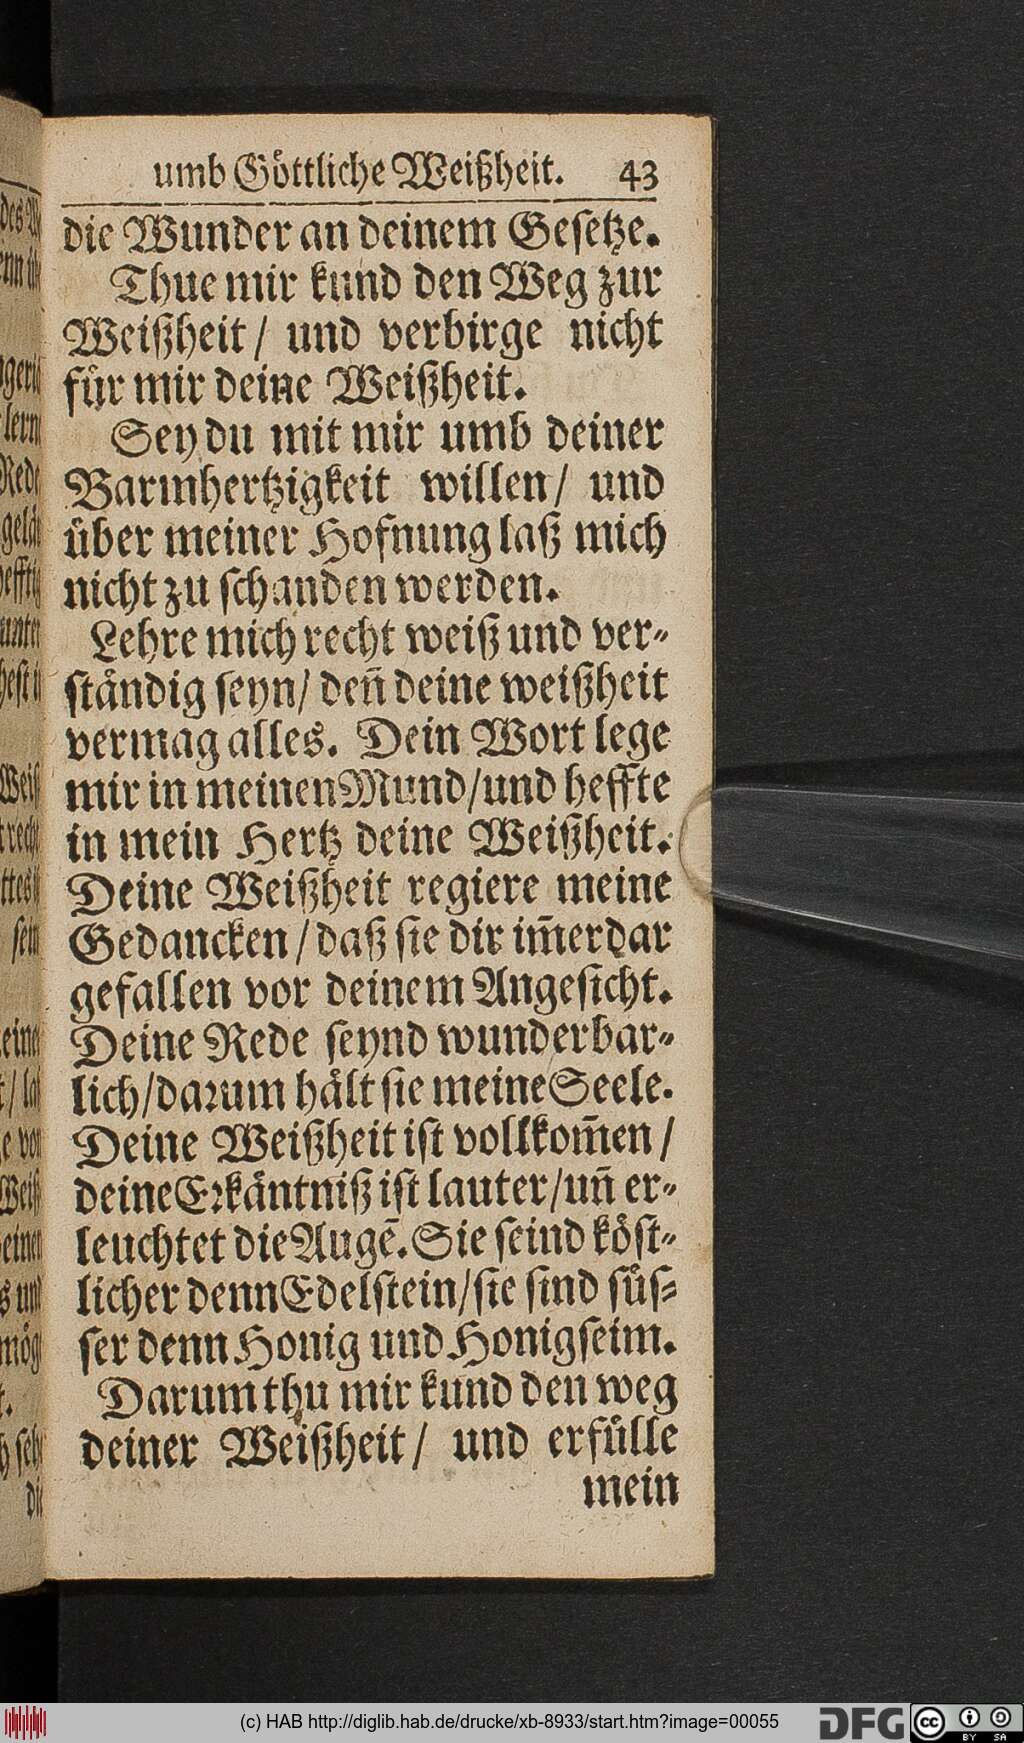 umb Göttliche Weißheit. 43
die Wunder an deinem Gesetze.
Thue mir kund den Weg zur
Weißheit / und verbirge nicht
für mir deine Weißheit.
Sey du mit mir umb deiner
Barmhertzigkeit willen / und
über meiner Hofnung laß mich
nicht zu schanden werden.
Lehre mich recht weiß und ver-
ständig seyn / deñ deine weißheit
vermag alles. Dein Wort lege
mir in meinen Mund / und heffte
in mein Hertz deine Weißheit.
Deine Weißheit regiere meine
Gedancken / daß sie dir im̃erdar
gefallen vor deinem Angesicht.
Deine Rede seynd wunderbar-
lich / darum hält sie meine Seele.
Deine Weißheit ist vollkom̃en /
deine Erkäntniß ist lauter / uñ er-
leuchtet die Augẽ. Sie seind köst-
licher denn Edelstein / sie sind süs-
ser denn Honig und Honigseim.
Darum thu mir kund den weg
deiner Weißheit / und erfülle
mein
(c) HAB http://diglib.hab.de/drucke/xb-8933/start.htm?image=00055
DFG
cc BY SA